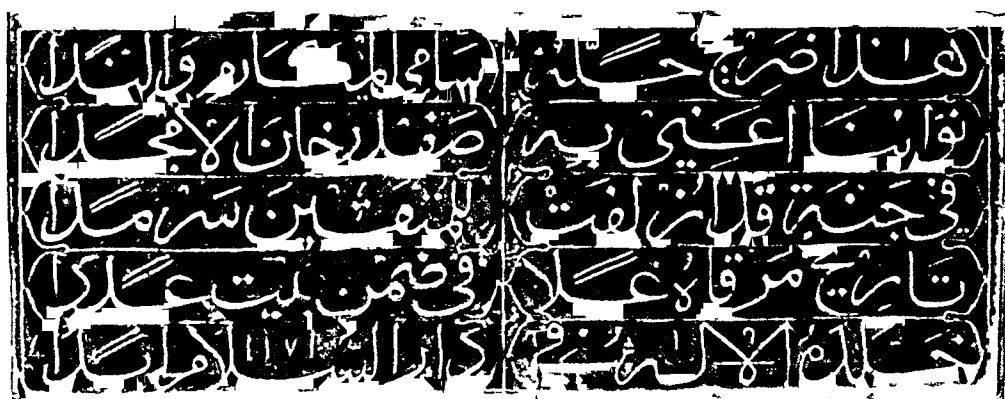 ضريح حله سامي والندا
نوابنا اعني به صفدر خان الامجدا
في جنة قد ازلفت للمتقين سرمدا
تاريخ مرقاه علا في ضمن بيت
خلده الاله في دار السلام ابدا